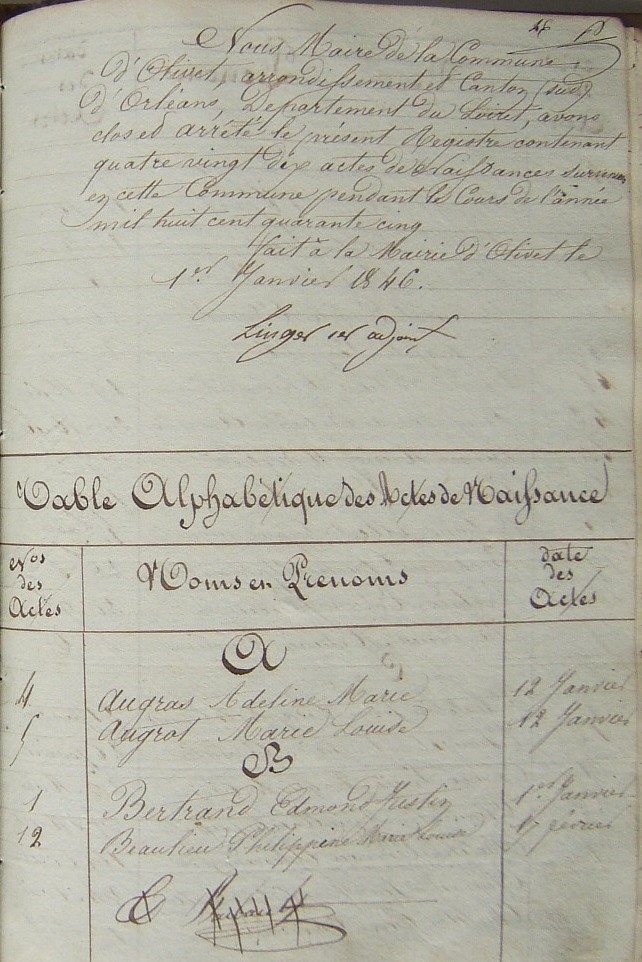 Nous Maire de la Commune
d'Olivet, arrondissement et Canton (sud)
d'Orléans, Département du Loiret, avons
clos et arrêté le présent Registre contenant
quatre vingt dix actes de Naissances
en cette Commune pendant le Cours de l'année
mil huit cent quarante cinq
fait à la Mairie d'Olivet le
1er Janvier 1846.
Linger 1er adjoint
Table Alphabétique des Actes de Naissance
Nos des Actes
Noms et Prenoms
date des Actes
A
4 Augras Adeline Marie 12 Janvier
5 Augrot Marie Louise 12 Janvier
B
1 Bertrand Edmond Justin 1er Janvier
12 Beaulieu Philippine Marie Louise 17 février